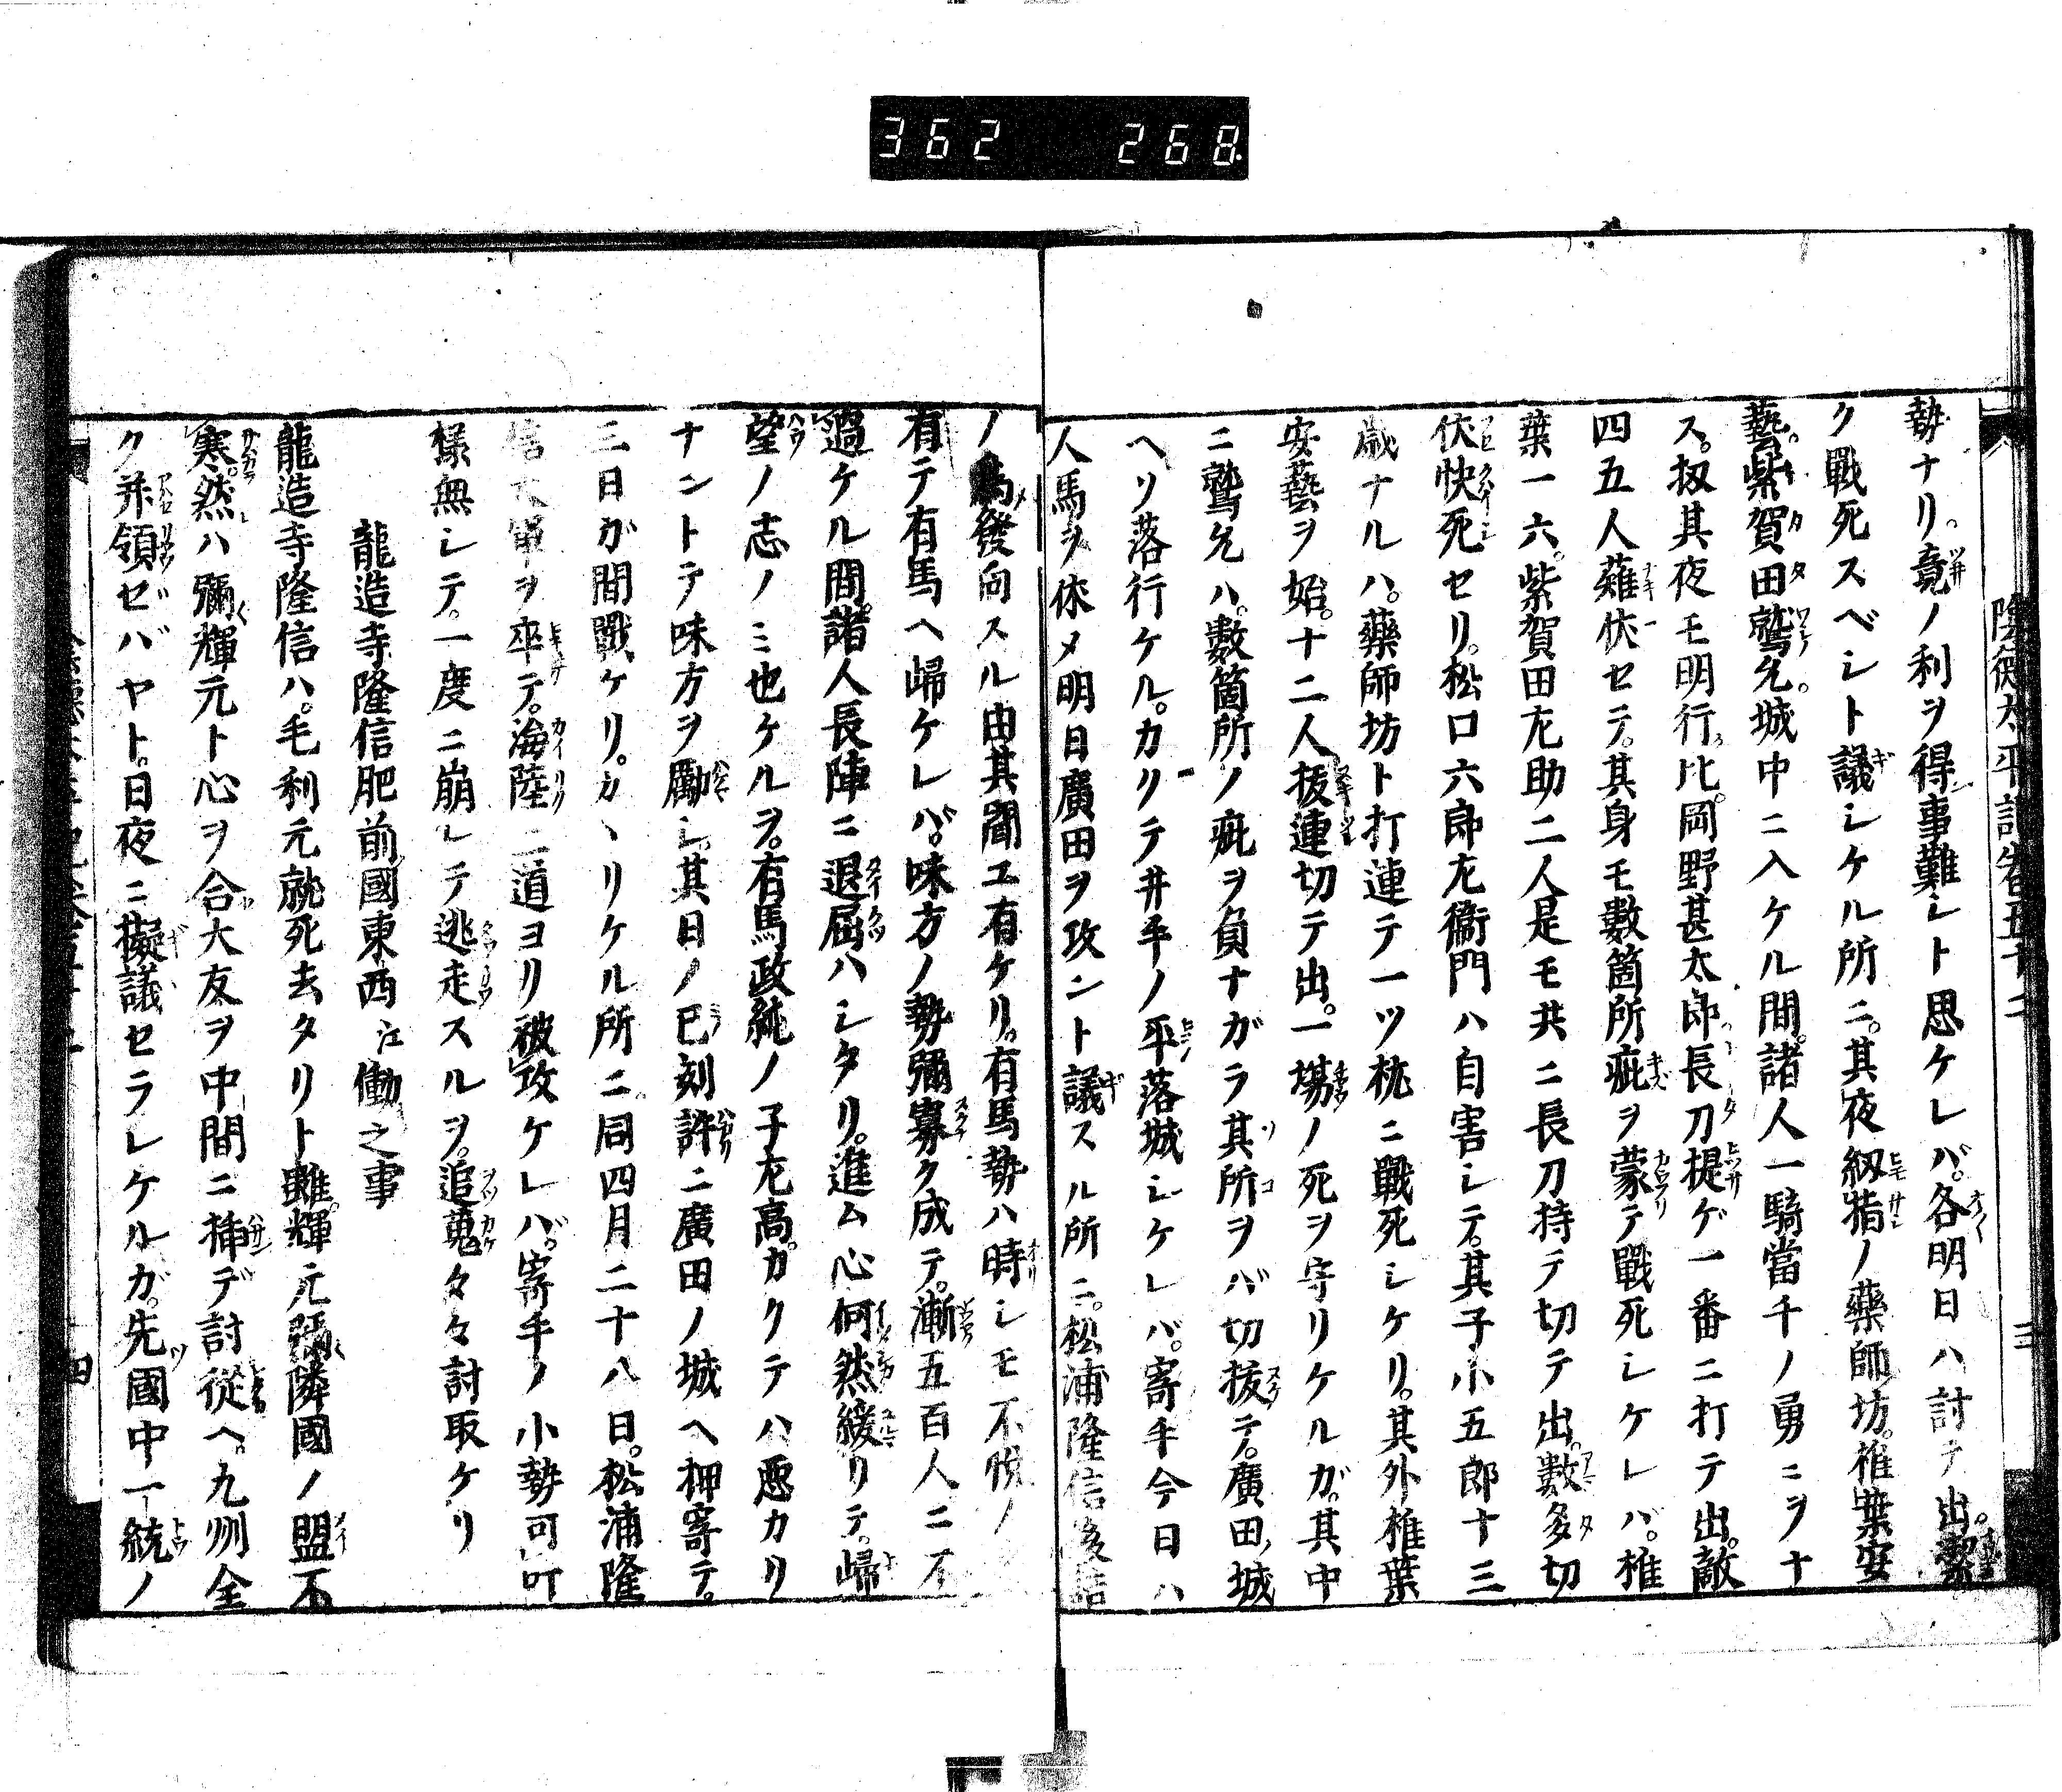 362 268
陰德太平記卷五十二 三
勢ナリ。竟ノ利ヲ得事難シト思ケレバ。各明日ハ討テ出。潔
ク戰死スベシト議シケル所ニ。其夜紉指ノ藥師坊。椎葉安
藝。紫賀田鷲允。城中ニ入ケル間。諸人一騎當千ノ勇ニヲナ
ス。扨其夜モ明行比。岡野甚太郎長刀提ゲ一番ニ打テ出。敵
四五人薙伏セテ。其身モ數箇所疵ヲ蒙テ戰死シケレバ。椎
葉一六。紫賀田左助二人是モ共ニ長刀持テ切テ出。數多切
伏快死セリ。松口六郎左衞門ハ自害シテ。其子小五郎十三
歲ナルハ。藥師坊ト打連テ一ツ枕ニ戰死シケリ。其外椎葉
安藝ヲ始。十二人拔連切テ出。一塲ノ死ヲ守リケルガ。其中
ニ鷲允ハ。數箇所ノ疵ヲ負ナガラ其所ヲバ切拔テ。廣田ノ城
ヘソ落行ケル。カクテ井手ノ平落城シケレバ。寄手今日ハ
人馬ヲ休メ明日廣田ヲ攻ント議スル所ニ。松浦隆信後詰
ノ爲發向スル由其聞エ有ケリ。有馬勢ハ時シモ不悅ノ
有テ有馬ヘ歸ケレバ。味方ノ勢彌寡ク成テ。漸五百人ニ不
過ケル間。諸人長陣ニ退屈ハシタリ。進ム心何然緩リテ。歸
望ノ志ノミ也ケルヲ。有馬政純ノ子左高。カクテハ惡カリ
ナントテ味方ヲ勵シ。其日ノ巳刻許ニ廣田ノ城ヘ押寄テ。
三日ガ間戰ケリ。カヽリケル所ニ同四月二十八日。松浦隆
信大軍ヲ卒テ。海陸二道ヨリ被攻ケレバ。寄手ノ小勢可叶
樣無シテ。一度ニ崩レテ逃走スルヲ。追蒐々々討取ケリ
龍造寺隆信肥前國東西江働之事
龍造寺隆信ハ。毛利元就死去タリト雖。輝元彌隣國ノ盟不
寒。然ハ彌輝元ト心ヲ合大友ヲ中間ニ挿デ討從ヘ。九州全
ク并領セバヤト。日夜ニ擬議セラレケルガ。先國中一統ノ
四